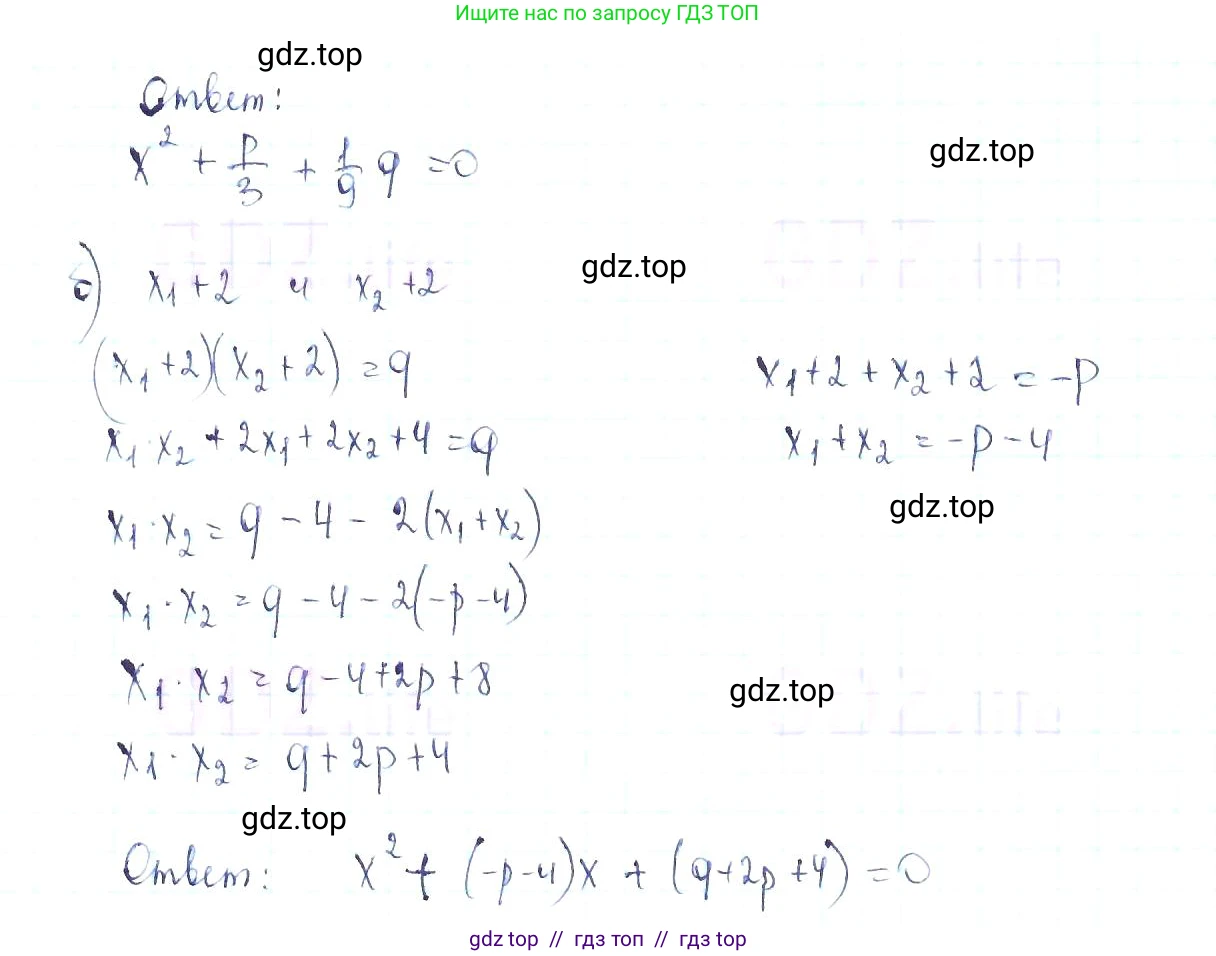 Ищите нас по запросу ГДЗ ТОП
gdz.top
Ответ:
x² + p/3 + 1/9 q = 0
gdz.top
б) x₁ + 2 и x₂ + 2
gdz.top
(x₁ + 2)(x₂ + 2) = q
x₁ + 2 + x₂ + 2 = -p
x₁ · x₂ + 2x₁ + 2x₂ + 4 = q
x₁ + x₂ = -p - 4
x₁ · x₂ = q - 4 - 2(x₁ + x₂)
gdz.top
x₁ · x₂ = q - 4 - 2(-p - 4)
x₁ · x₂ = q - 4 + 2p + 8
gdz.top
x₁ · x₂ = q + 2p + 4
gdz.top
Ответ: x² + (-p-4)x + (q+2p+4) = 0
gdz top // гдз топ // гдз top